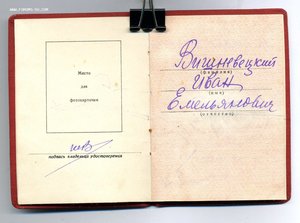 Место
для
фотокарточки
подпись владельца удостоверения
Вишневецкий
(фамилия)
Иван
(имя)
Емельянович
(отчество)